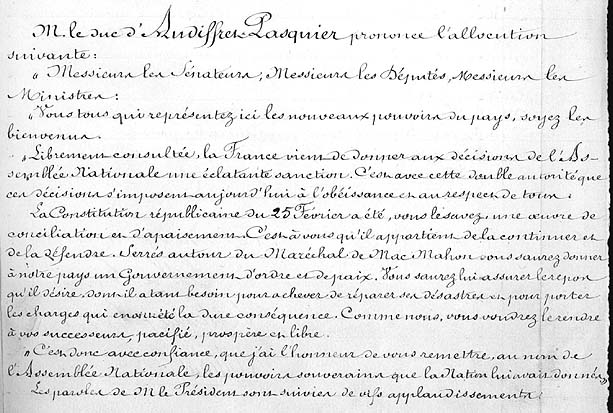 M. le duc d'Audiffret-Pasquier prononce l'allocution
suivante :
« Messieurs les Sénateurs, Messieurs les Députés, Messieurs les
Ministres :
« Vous tous qui représentez ici les nouveaux pouvoirs du pays, soyez les
bienvenus.
« Librement consultée, la France vient de donner aux décisions de l'As-
semblée Nationale une éclatante sanction. C'est avec cette double autorité que
ces décisions s'imposent aujourd'hui à l'obéissance et au respect de tous.
La Constitution républicaine du 25 Février a été, vous le savez, une œuvre de
conciliation et d'apaisement. C'est à vous qu'il appartient de la continuer et
de la défendre. Serrés autour du Maréchal de Mac Mahon vous saurez donner
à notre pays un Gouvernement d'ordre et de paix. Vous saurez lui assurer le repos
qu'il désire, dont il a tant besoin pour achever de réparer ses désastres et pour porter
les charges qui en ont été la dure conséquence. Comme nous, vous voudrez le rendre
à vos successeurs, pacifié, prospère et libre.
« C'est donc avec confiance, que j'ai l'honneur de vous remettre, au nom de
l'Assemblée Nationale, les pouvoirs souverains que la Nation lui avait donnés.
Les paroles de M. le Président sont suivies de vifs applaudissements.